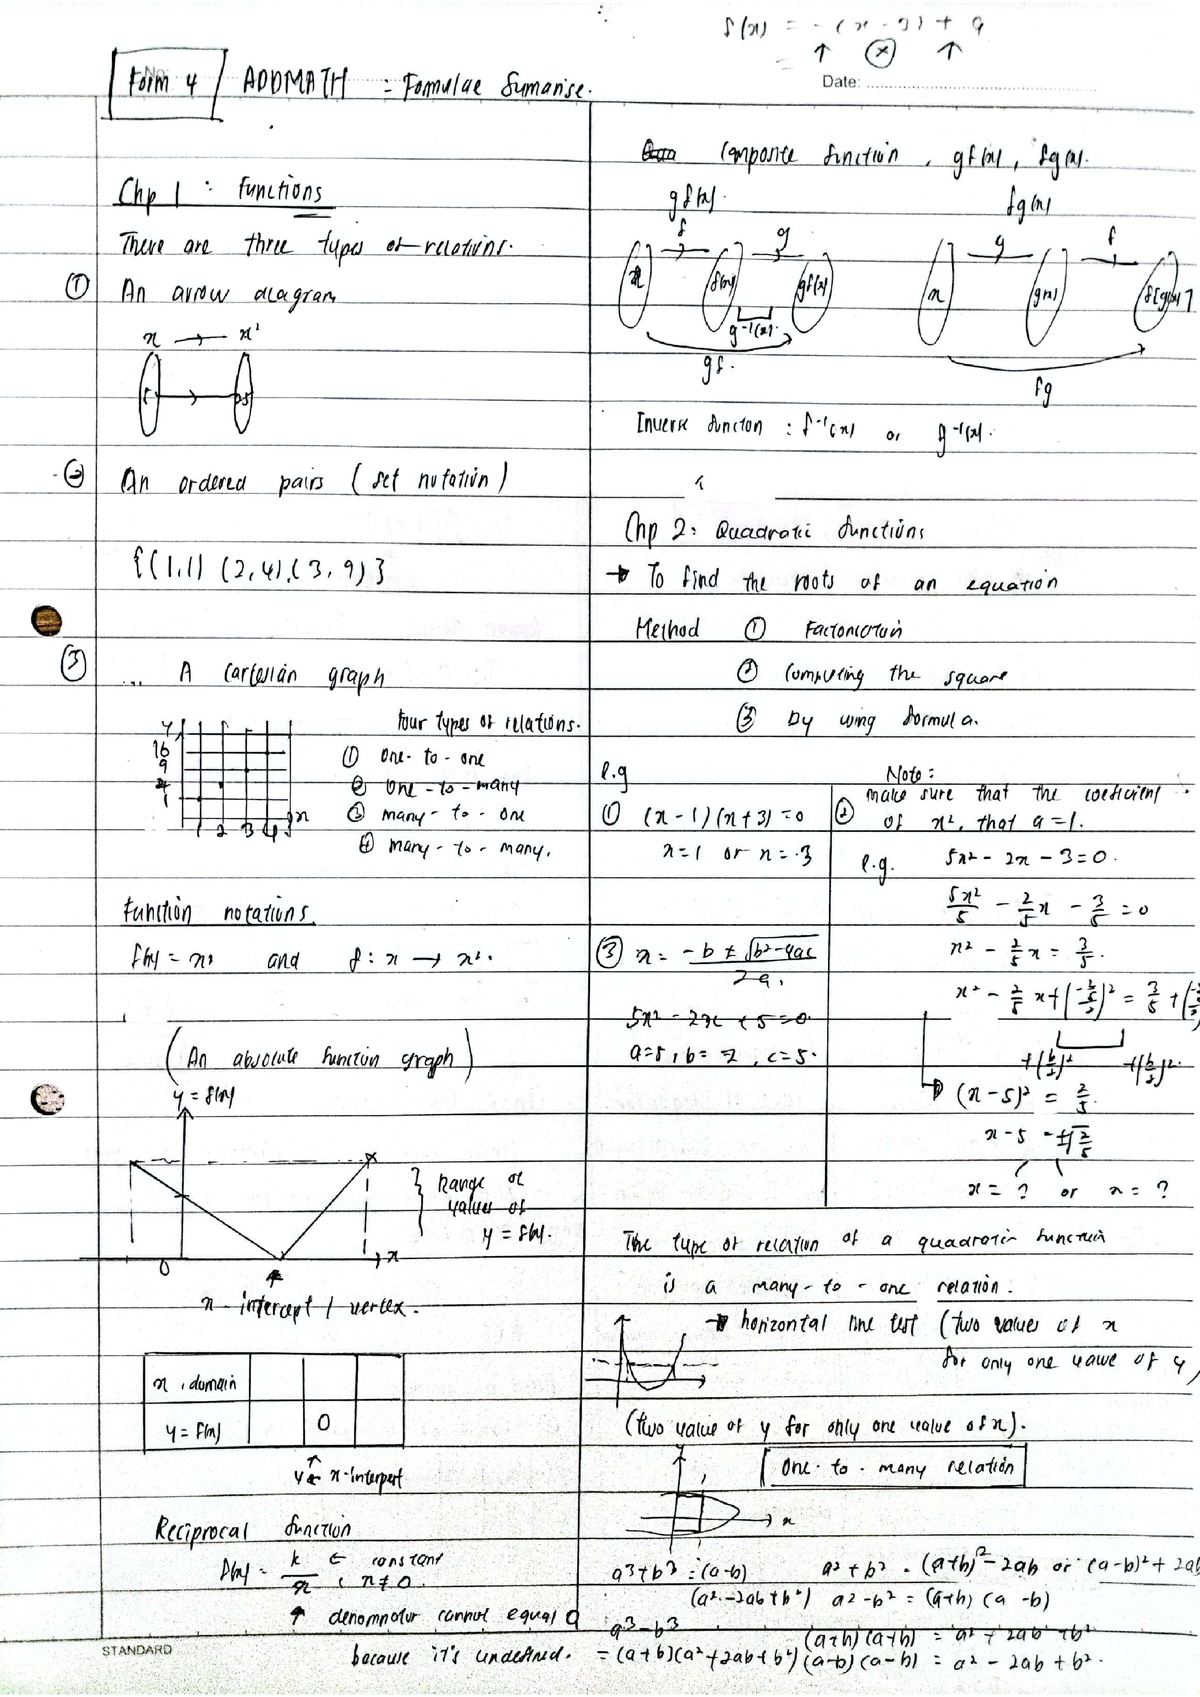 f(x) = -(x - 3) + 9
Date:
Form 4
ADDMATH = Formulae Sumarise.
Chp 1 : Functions
There are three types of relations.
① An arrow diagram
x → x²
5
25
② An ordered pairs ( set notation )
{(1,1) (2,4),(3,9)}
③ A Cartesian graph
y
16
9
4
1
1 2 3 4 x
Four types of relations.
① one - to - one
② one - to - many
③ many - to - one
④ many - to - many.
Function notations.
f(x) = x² and f : x → x².
(An absolute function graph)
y = f(x)
Range of
values of
y = f(x).
0
x
x - intercept / vertex.
x , domain
y = f(x) 0
x-interpert
Reciprocal function
f(x) = k/x ← constant , x ≠ 0.
↑ denomnator cannot equal 0
because it's undefined.
STANDARD
Composite function , gf(x) , fg(x).
gf(x).
f g
x f(x) gf(x)
g⁻¹(x).
gf.
fg(x)
g f
x g(x) f[g(x)]
fg
Inverse function : f⁻¹(x) or g⁻¹(x).
Chp 2: Quadratic functions
→ To find the roots of an equation
Method ①
② the square
③ by using formula.
e.g
① (x - 1)(x + 3) = 0
x = 1 or x = -3
③ x = -b ± √b² - 4ac / 2a.
5x² - 2x + 5 = 0
a = 5 , b = 2 , c = 5.
Note :
② make sure that the coefficient
of x², that a = 1.
e.g. 5x² - 2x - 3 = 0.
5x²/5 - 2/5 x - 3/5 = 0
x² - 2/5 x = 3/5.
x² - 2/5 x + (-2/5/2)² = 3/5 +
+(b/2)² +(b/2)².
→ (x - 5)² = 2/5.
x - 5 = ±√2/5
x = ? or x = ?
The type of relation of a quadratic function
is a many - to - one relation.
→ horizontal line test (two values of x
for only one value of y)
(two value of y for only one value of x).
y
One - to - many relation
x
a³ + b³ = (a-b)
(a² - 2ab + b²)
a³ - b³
= (a+b)(a² + 2ab + b²)
a² + b² = (a+b)² - 2ab or (a-b)² + 2ab
a² - b² = (a+b) (a - b)
(a+b)(a+b) = a² + 2ab + b²
(a-b)(a-b) = a² - 2ab + b².